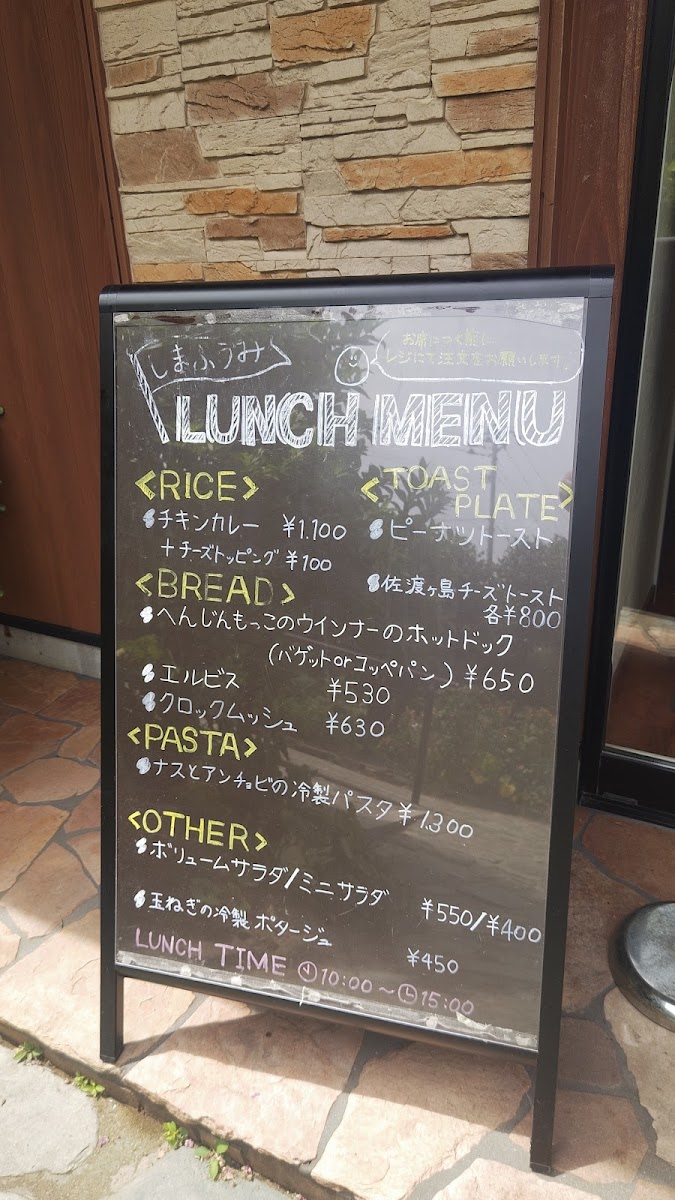 しまふうみ
お席につく前に
レジにて注文をお願いします
LUNCH MENU
<RICE>
チキンカレー ¥1.100
+チーズトッピング ¥100
<BREAD>
へんじんもっこのウインナーのホットドック
(バゲットorコッペパン) ¥650
エルビス ¥530
クロックムッシュ ¥630
<PASTA>
ナスとアンチョビの冷製パスタ ¥1.300
<OTHER>
ボリュームサラダ/ミニサラダ
¥550/¥400
玉ねぎの冷製ポタージュ
¥450
<TOAST
PLATE>
ピーナツトースト
佐渡ヶ島チーズトースト
各¥800
LUNCH TIME 10:00~15:00